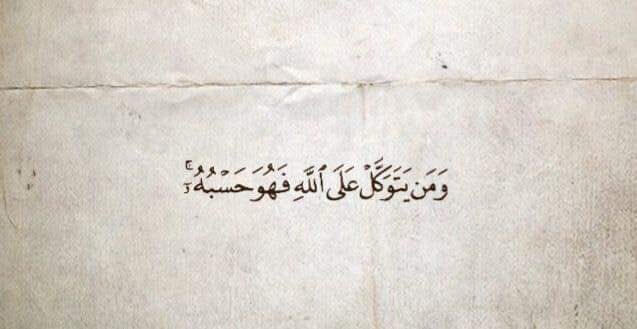 وَمَن يَتَوَكَّلۡ عَلَى ٱللَّهِ فَهُوَ حَسۡبُهُۥٓۚ